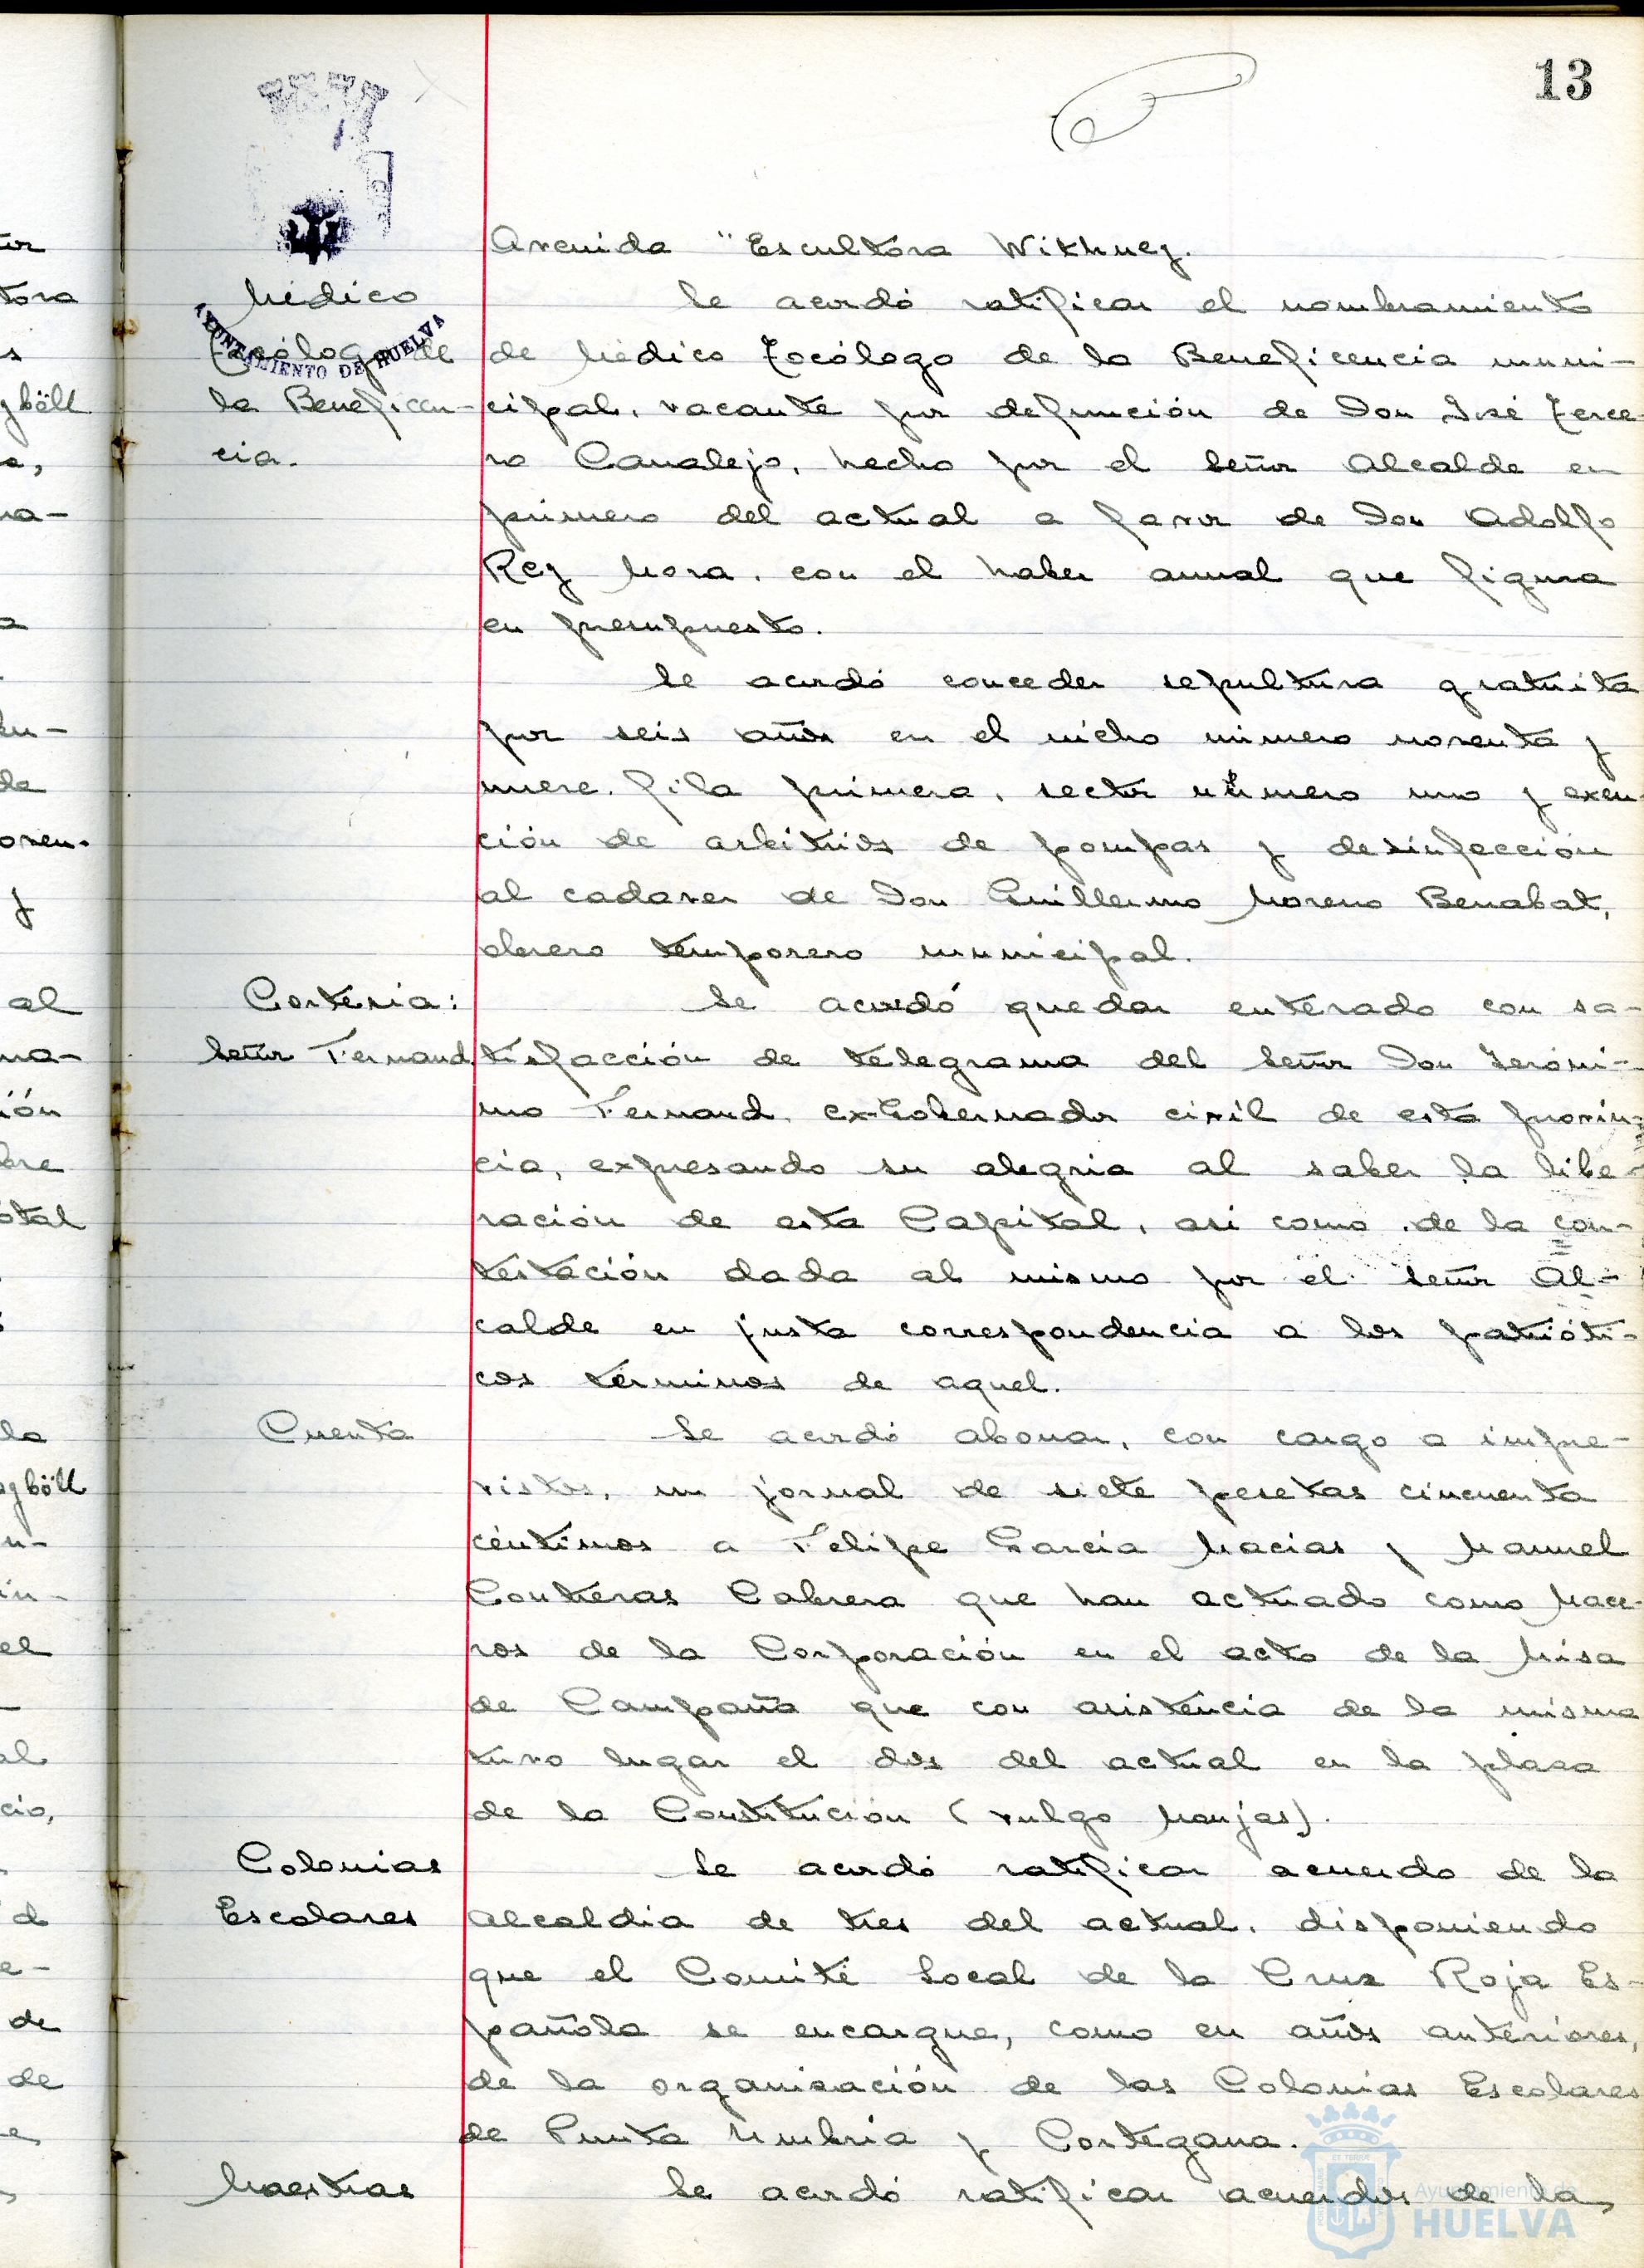 13
Avenida "Escultora Withney.
Médico
Tocólogo de
la Beneficen-
cia.
AYUNTAMIENTO DE HUELVA
Se acordó ratificar el nombramiento
de Médico Tocólogo de la Beneficencia muni-
cipal, vacante por defunción de Don José Terce-
ro Canalejo, hecho por el Señor Alcalde en
primero del actual a favor de Don Adolfo
Rey Mora, con el haber anual que figura
en presupuesto.
Se acordó conceder sepultura gratuita
por seis años en el nicho número noventa y
nueve, fila primera, sector número uno y exen-
ción de arbitrios de pompas y desinfección
al cadaver de Don Guillermo Moreno Benabat,
obrero temporero municipal.
Cortesia:
Señor Fernaud
Se acordó quedar enterado con sa-
tisfacción de telegrama del Señor Don Jeróni-
mo Fernaud, ex-Gobernador civil de esta provin-
cia, expresando su alegria al saber la libe-
ración de esta Capital, asi como de la con-
testación dada al mismo por el Señor Al-
calde en justa correspondencia a los patrióti-
cos términos de aquel.
Cuenta
Se acordó abonar, con cargo a impre-
vistos, un jornal de siete pesetas cincuenta
céntimos a Felipe García Macias y Manuel
Contreras Cabrera que han actuado como Mace-
ros de la Corporación en el acto de la Misa
de Campaña que con asistencia de la misma
tuvo lugar el dos del actual en la plaza
de la Constitución (vulgo Monjas).
Colonias
Escolares
Se acordó ratificar acuerdo de la
Alcaldia de tres del actual, disponiendo
que el Comité Local de la Cruz Roja Es-
pañola se encargue, como en años anteriores,
de la organización de las Colonias Escolares
de Punta Umbria y Cortegana.
Maestras
Se acordó ratificar acuerdos de la
Ayuntamiento de
HUELVA